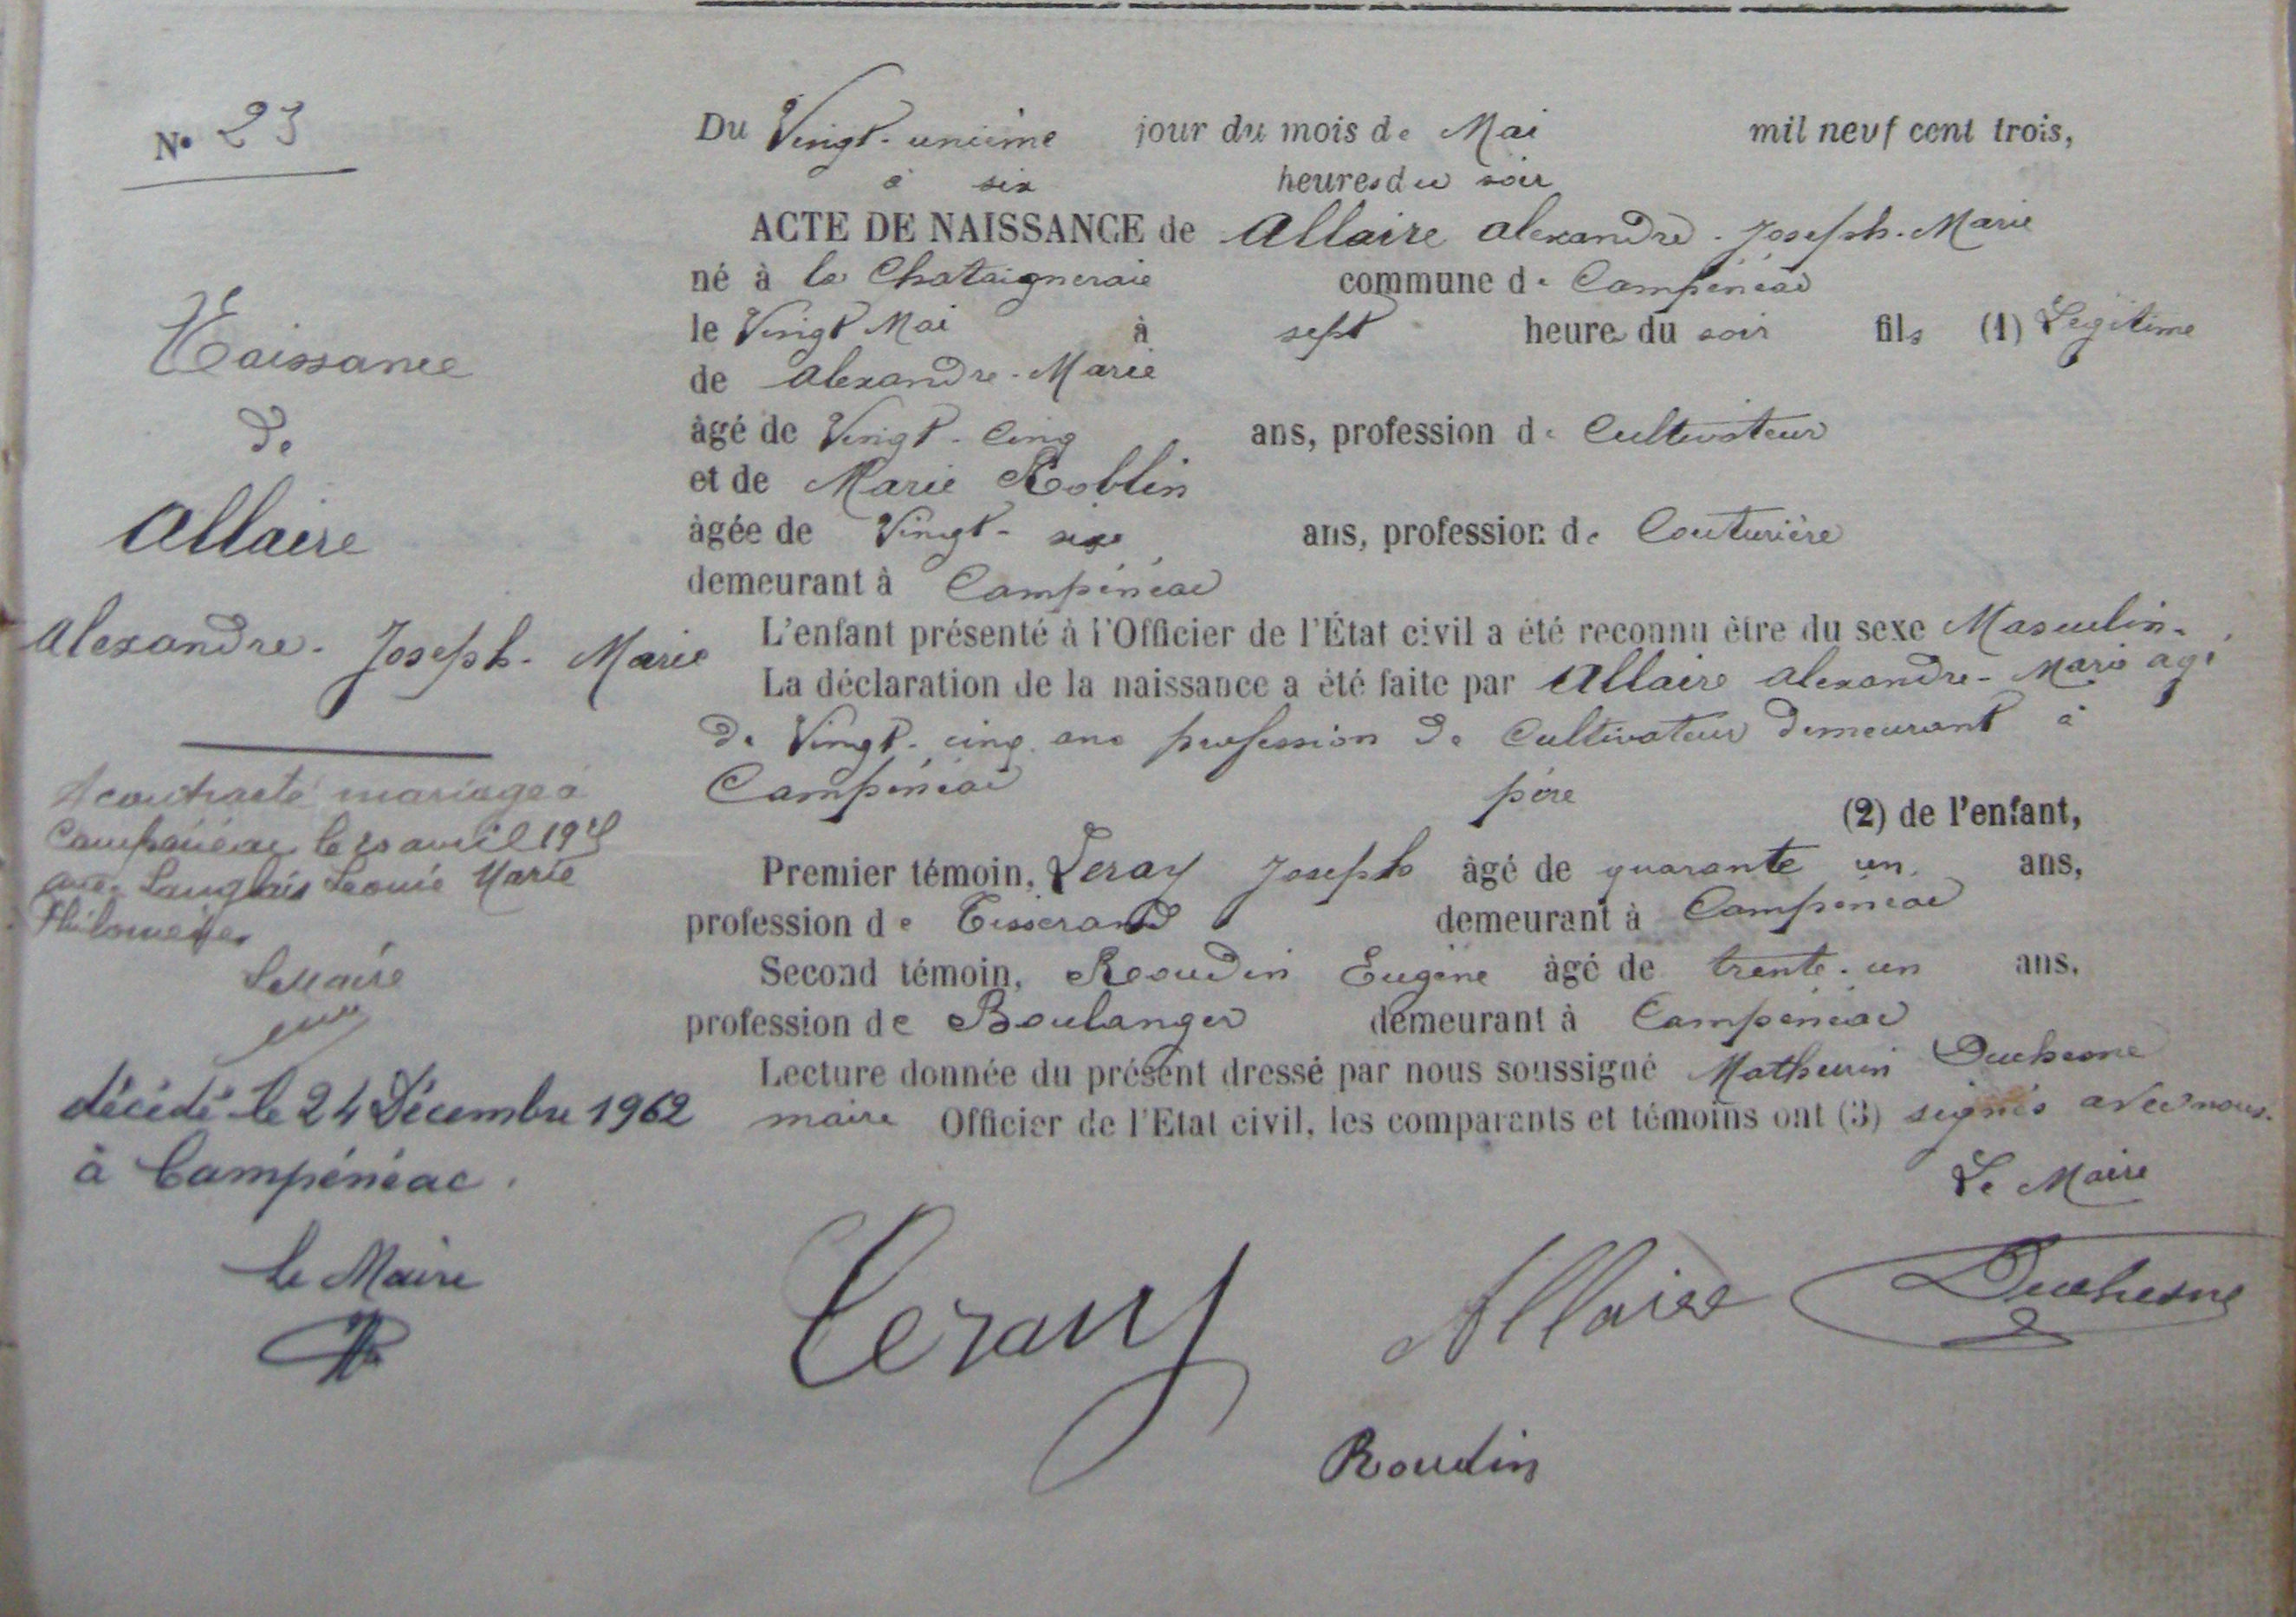 N° 23
Naissance
de
Allaire
Alexandre - Joseph - Marie
A contracté mariage à
Campénéac le avril
avec Langlais Léonie Marie
Philomène
Le Maire
décédé le 24 Décembre 1962
à Campénéac.
le Maire
Du Vingt-unième jour du mois de Mai mil neuf cent trois,
à six heures du soir
ACTE DE NAISSANCE de Allaire Alexandre - Joseph - Marie
né à la Chataigneraie commune de Campénéac
le Vingt Mai à sept heure du soir fils (1) Légitime
de Alexandre - Marie
âgé de Vingt-Cinq ans, profession de Cultivateur
et de Marie Roblin
âgée de Vingt-six ans, profession de Couturière
demeurant à Campénéac
L'enfant présenté à l'Officier de l'État civil a été reconnu être du sexe Masculin.
La déclaration de la naissance a été faite par Allaire Alexandre - Marie agé
de Vingt-cinq ans profession de Cultivateur demeurant à
Campénéac père (2) de l'enfant,
Premier témoin, Leray Joseph âgé de quarante un ans,
profession de Tisserand demeurant à Campénéac
Second témoin, Roudin Eugène âgé de trente-un ans.
profession de Boulanger demeurant à Campénéac
Lecture donnée du présent dressé par nous soussigné Mathurin Duchesne
maire Officier de l'Etat civil, les comparants et témoins ont (3) signés avec nous.
Le Maire
Leray Allaire Duchesne
Roudin